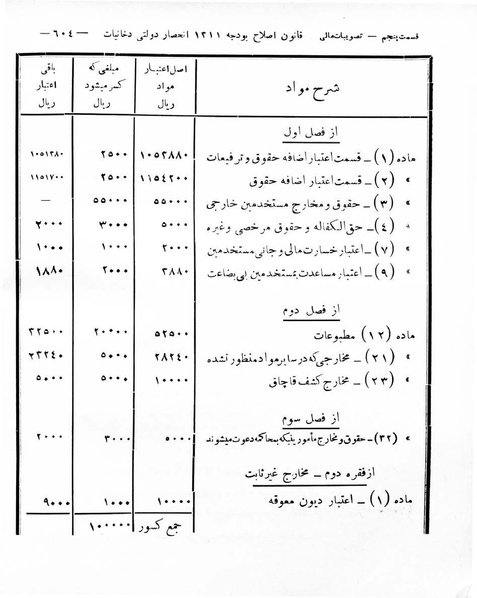 قسمت پنجم — تصویبات مالی قانون اصلاح بودجه ۱۳۱۱ انحصار دولتی دخانیات — ۶۰۴ —
شرح مواد اصل اعتبار مواد ریال مبلغی که کسر میشود ریال باقی اعتبار ریال
از فصل اول
ماده (۱) ــ قسمت اعتبار اضافه حقوق و ترفیعات ۱۰۵۳۸۸۰ ۲۵۰۰ ۱۰۵۱۳۸۰
» (۲) ــ قسمت اعتبار اضافه حقوق ۱۱۵۴۲۰۰ ۲۵۰۰ ۱۱۵۱۷۰۰
» (۳) ــ حقوق و مخارج مستخدمین خارجی ۵۵۰۰۰ ۵۵۰۰۰ —
» (۴) ــ حق الکفاله و حقوق مرخصی وغیره ۵۰۰۰ ۳۰۰۰ ۲۰۰۰
» (۷) ــ اعتبار خسارت مالی و جانی مستخدمین ۲۰۰۰ ۱۰۰۰ ۱۰۰۰
» (۹) ــ اعتبار مساعدت بمستخدمین بی بضاعت ۳۸۸۰ ۲۰۰۰ ۱۸۸۰
از فصل دوم
ماده (۱۲) مطبوعات ۵۲۵۰۰ ۲۰۰۰۰ ۳۲۵۰۰
» (۲۱) ــ مخارجی که در سایر مواد منظور نشده ۲۸۲۴۰ ۵۰۰۰ ۲۳۲۴۰
» (۲۳) ــ مخارج کشف قاچاق ۱۰۰۰۰ ۵۰۰۰ ۵۰۰۰
از فصل سوم
» (۳۲)ــ حقوق و مخارج مأمورینیکه بمحاکمه دعوت میشوند ۵۰۰۰ ۳۰۰۰ ۲۰۰۰
از فقره دوم ــ مخارج غیر ثابت
ماده (۱) ــ اعتبار دیون معوقه ۱۰۰۰۰ ۱۰۰۰ ۹۰۰۰
جمع کسور ۱۰۰۰۰۰